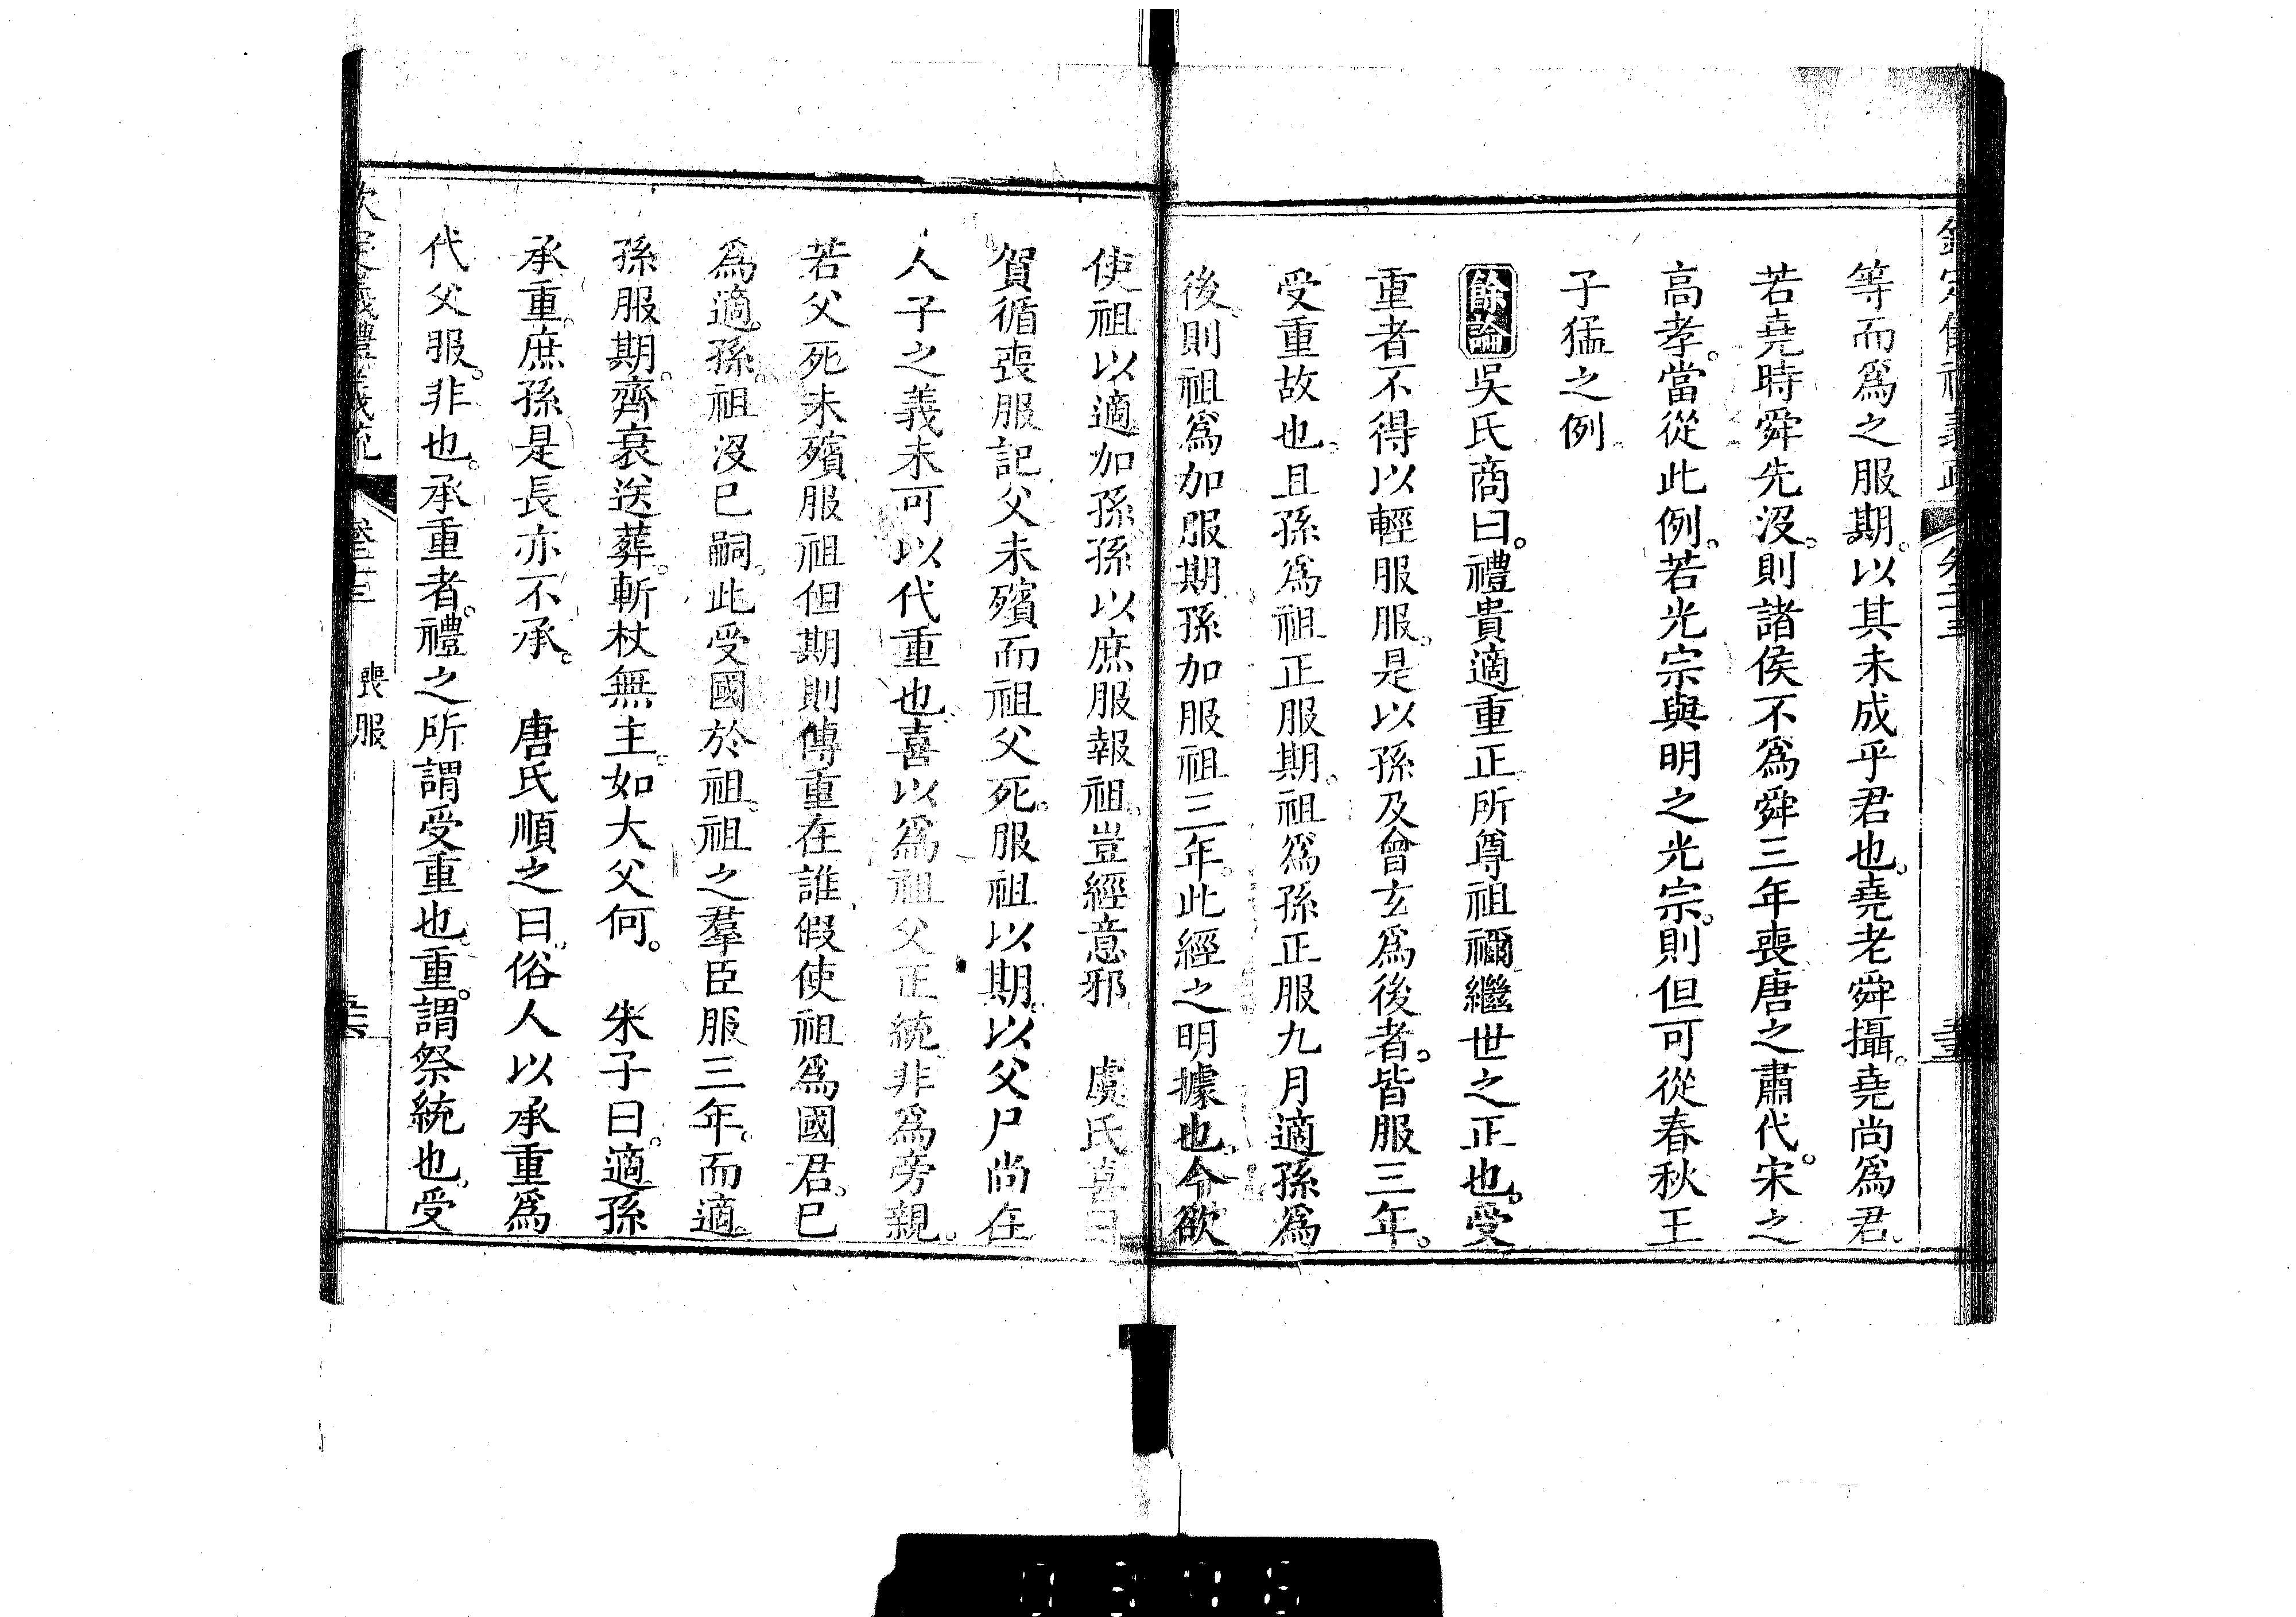 等而爲之服期。以其未成乎君也。堯老舜攝。堯尚爲君。
若堯時舜先沒。則諸侯不爲舜三年喪。唐之肅代。宋之
高孝。當從此例。若光宗與明之光宗。則但可從春秋王
子猛之例。
餘論吳氏商曰。禮貴適重正。所尊祖禰繼世之正也。受
重者不得以輕服服。是以孫及曾玄爲後者。皆服三年。
受重故也。且孫爲祖正服期。祖爲孫正服九月。適孫爲
後。則祖爲加服期。孫加服祖三年。此經之明據也。今欲
使祖以適加孫。孫以庶服報祖。豈經意邪 虞氏喜曰
賀循喪服記父未殯而祖父死。服祖以期。以父尸尚在
人子之義未可以代重也。喜以爲祖父正統非爲旁親。
若父死未殯服祖但期則傳重在誰。假使祖爲國君。已
爲適孫。祖沒已嗣。此受國於祖。祖之羣臣服三年。而適
孫服期。齊衰送葬。斬杖無主。如大父何。 朱子曰。適孫
承重。庶孫是長亦不承。 唐氏順之曰。俗人以承重爲
代父服。非也。承重者。禮之所謂受重也。重。謂祭統也。受
卷二三 喪服